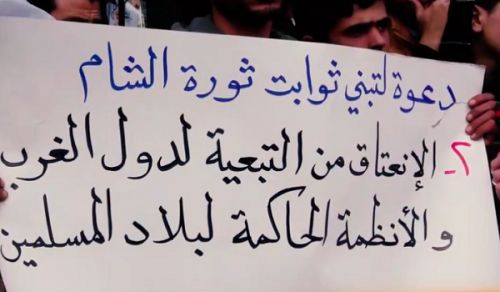 دعوة لتبني ثوابت ثورة الشام
٢- الإنعتاق من التبعية لدول الغرب
والأنظمة الحاكمة لبلاد المسلمين